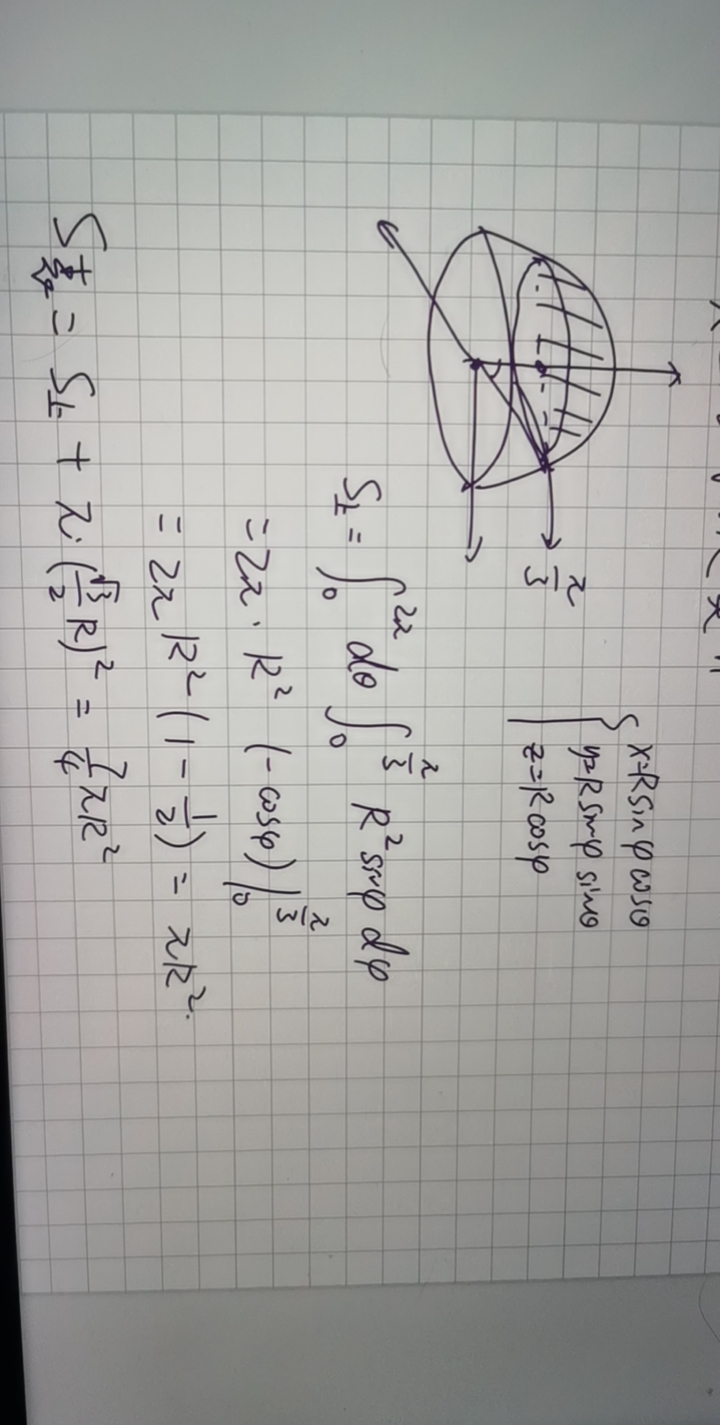 π/3
{ x=Rsinφcosθ
y=Rsinφsinθ
z=Rcosφ
S上 = ∫₀^{2π} dθ ∫₀^{π/3} R² sinφ dφ
= 2π · R² (-cosφ) |₀^{π/3}
= 2π R² (1 - 1/2) = πR².
= S上 + π·(√3/2 R)² = 7/4 πR²